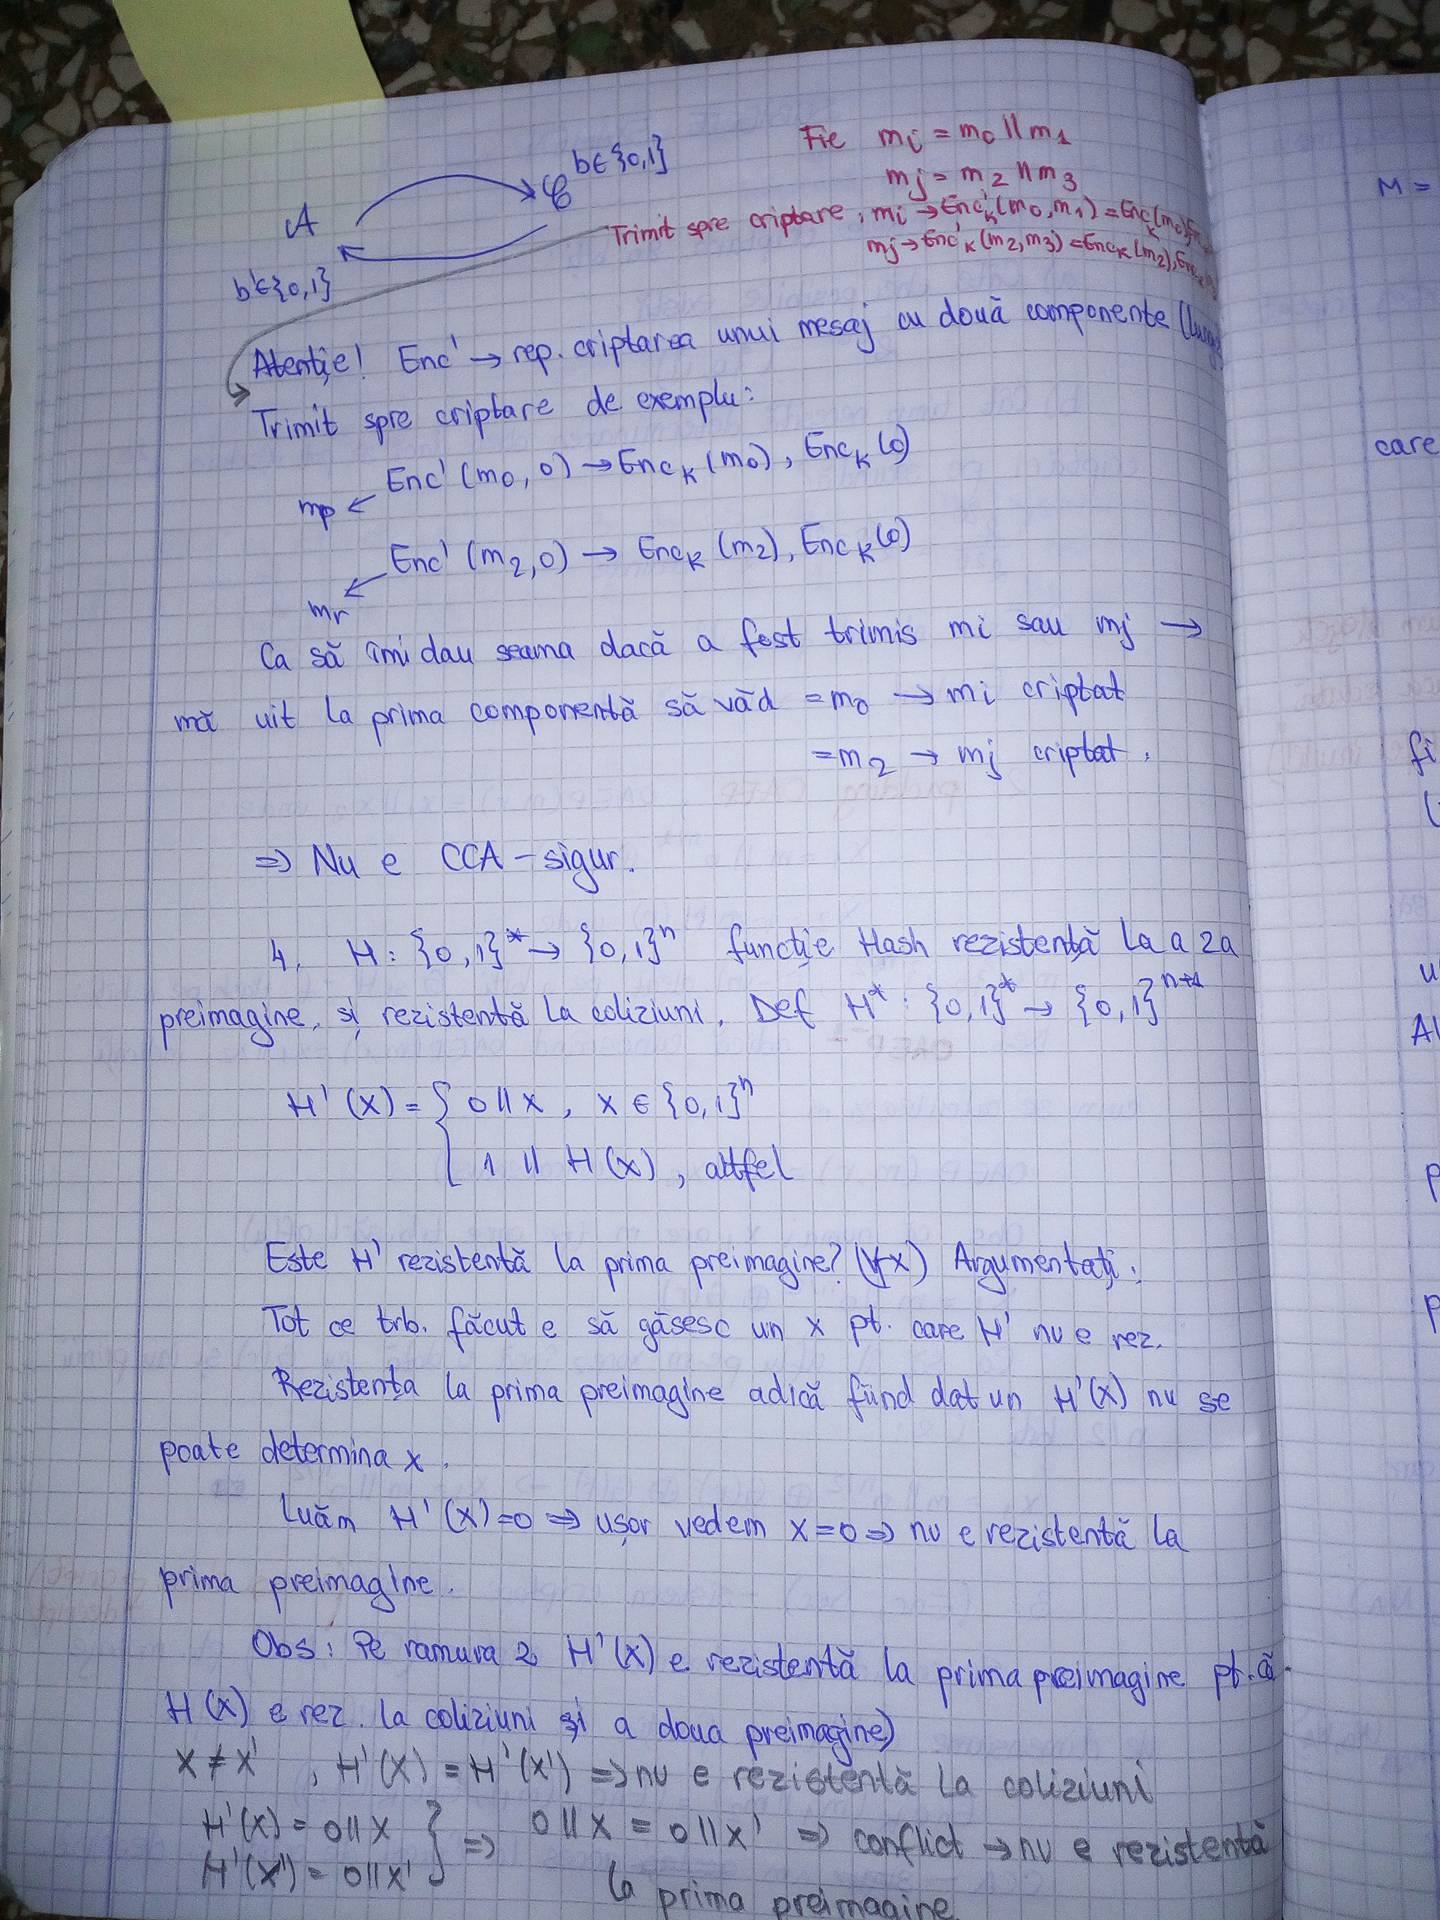 Fie mi = m0 || m1
mj = m2 || m3
b∈{0,1}
A C
b'∈{0,1}
Trimit spre criptare, mi → Enc'K(m0, m1) = EncK(m0),
mj → Enc'K(m2, m3) = EncK(m2),
Atenție! Enc' → rep. criptarea unui mesaj cu două componente
Trimit spre criptare de exemplu:
Enc'(m0, 0) → EncK(m0), EncK(0)
mp ←
Enc'(m2, 0) → EncK(m2), EncK(0)
mr
Ca să îmi dau seama dacă a fost trimis mi sau mj →
mă uit la prima componentă să văd = m0 → mi criptat
= m2 → mj criptat.
⇒ Nu e CCA-sigur.
4. H: {0,1}* → {0,1}^n funcție Hash rezistentă la a 2a
preimagine, și rezistentă la coliziuni. Def H*: {0,1}* → {0,1}^n+1
H'(x) = { 0 || x, x ∈ {0,1}^n
1 || H(x), altfel
Este H' rezistentă la prima preimagine? (∀x) Argumentați.
Tot ce trb. făcut e să găsesc un x pt. care H' nu e rez.
Rezistența la prima preimagine adică fiind dat un H'(x) nu se
poate determina x.
Luăm H'(x)=0 ⇒ ușor vedem x=0 ⇒ nu e rezistentă la
prima preimagine.
Obs: Pe ramura 2 H'(x) e rezistentă la prima preimagine pt. că
H(x) e rez. la coliziuni și a doua preimagine)
x ≠ x', H'(x) = H'(x') ⇒ nu e rezistentă la coliziuni
H'(x) = 0 || x } ⇒ 0 || x = 0 || x' ⇒ conflict → nu e rezistentă
H'(x') = 0 || x' la prima preimagine
M =
care
fi
u
Al
p
p